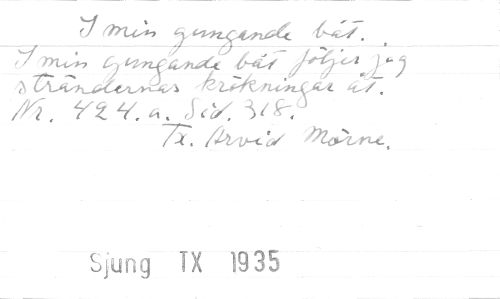 I min gungande båt.
I min gungande båt följer jag
strändernas krökningar åt.
Nr. 424.a. Sid. 318.
Tx. Arvid Mörne.
Sjung TX 1935